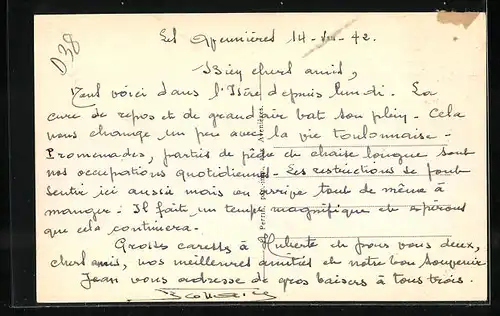 D38
Les Avenières 14-VII-42.
Bien chers amis,
Nous voici dans l'Isère depuis lundi. La
cure de repos et de grand air bat son plein. Cela
nous change un peu avec la vie toulonnaise -
Promenades, parties de pêche et chaise longue sont
nos occupations quotidiennes. Les restrictions se font
sentir ici aussi mais on arrive tout de même à
manger - Il fait un temps magnifique et espérons
que cela continuera.
Grosses caresses à Huberte et pour vous deux,
chers amis, nos meilleures amitiés et notre bon souvenir
Jean vous adresse de gros baisers à tous trois.